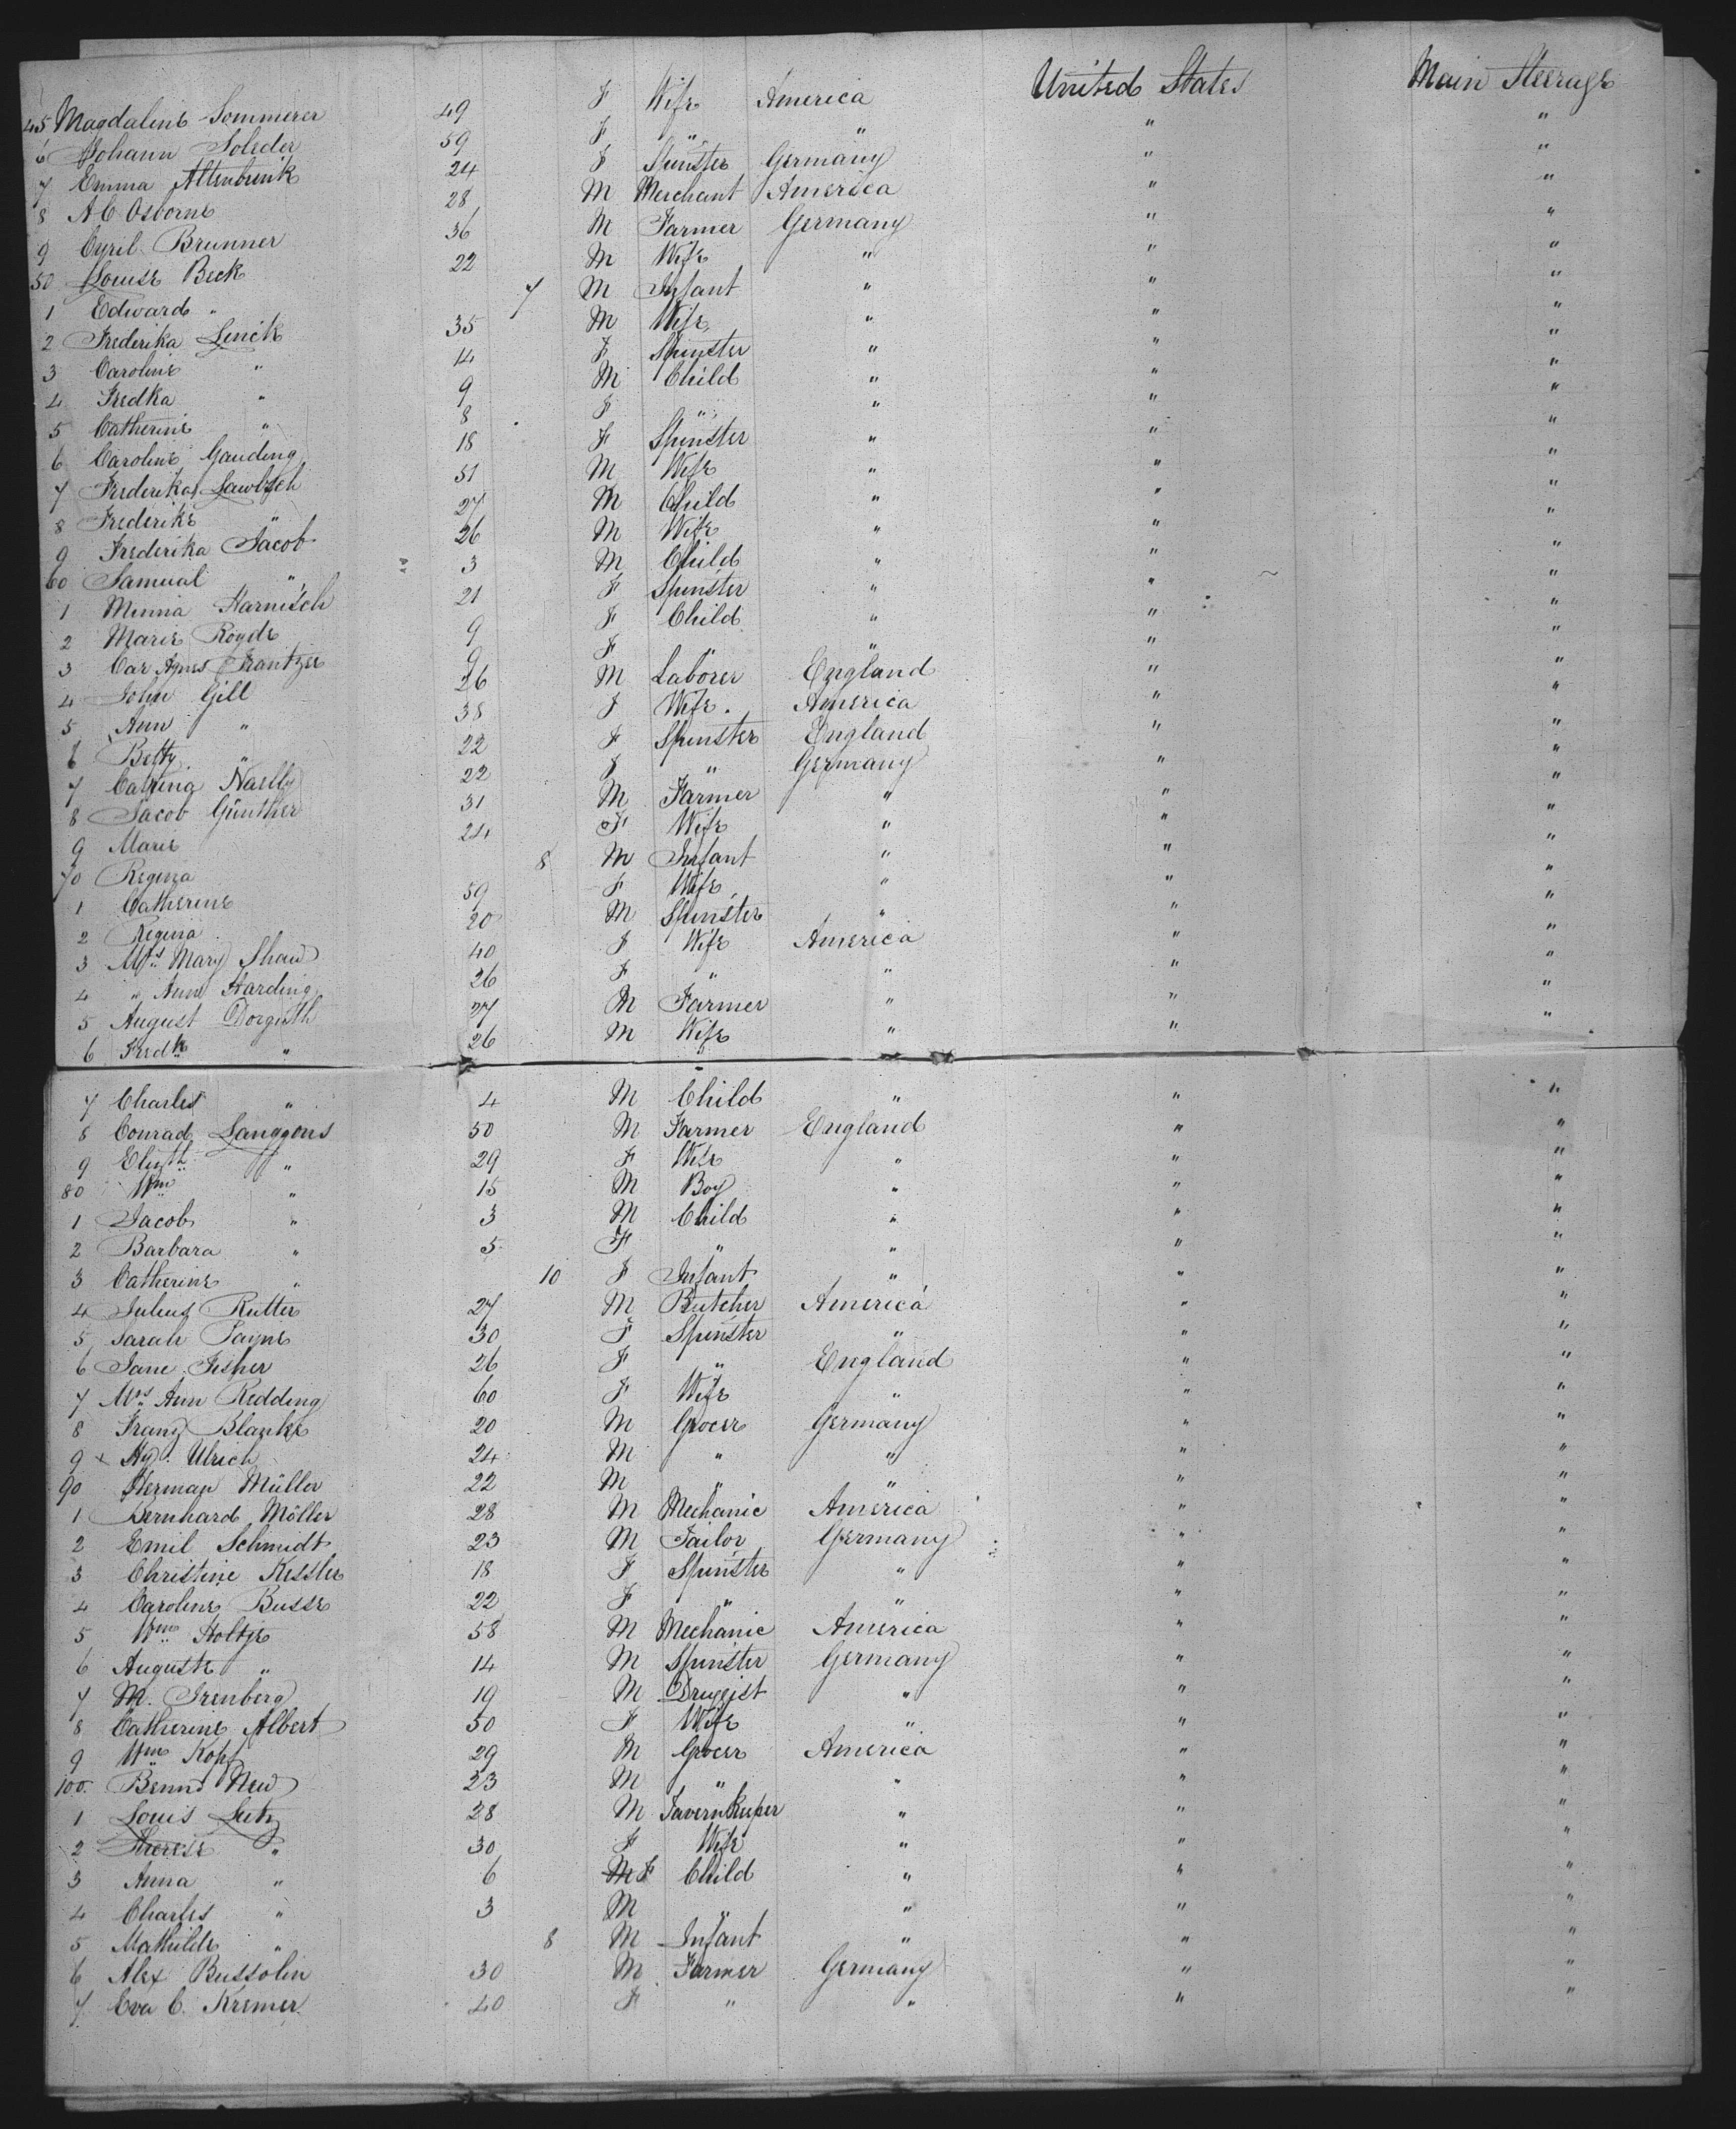 45 Magdaline Sommerer 49 F Wife America United States Main Steerage
6 Johann Soleder 59 F " " " "
7 Emma Altenbrink 24 F Spinster Germany " "
8 A C Osborne 28 M Merchant America " "
9 Cyril Brunner 36 M Farmer Germany " "
50 Louise Beck 22 M Wife " " "
1 Edward " 7 M Infant " " "
2 Frederika Linck 35 M Wife " " "
3 Caroline " 14 F Spinster " " "
4 Fredka " 9 M Child " " "
5 Catherine " 8 F " " " "
6 Caroline Gauding 18 F Spinster " " "
7 Frederika 51 M Wife " " "
8 Frederike " 27 M Child " " "
9 Frederika Jacob 26 M Wife " " "
60 Samual " 3 M Child " " "
1 Minna Harnisch 21 F Spinster " " "
2 Marie Royde 9 F Child " " "
3 Car Agnes Frantzer 9 F " " " "
4 John Gill 26 M Laborer England " "
5 Ann " 38 F Wife. America " "
6 Betty " 22 F Spinster England " "
7 Catrina Naelly 22 F " Germany " "
8 Jacob Günther 31 M Farmer " " "
9 Marie 24 F Wife " " "
70 Regina 8 M Infant " " "
1 Catherine 59 F Wife " " "
2 Regina 20 M Spinster " " "
3 Mrs Mary Shaw 40 F Wife America " "
4 " Ann Harding 26 F " " " "
5 August Dorguth 27 M Farmer " " "
6 Fredk " 26 M Wife " " "
7 Charles " 4 M Child " " "
8 Conrad Langgons 50 M Farmer England " "
9 Elizth " 29 F Wife " " "
80 Wm " 15 M Boy " " "
1 Jacob " 3 M Child " " "
2 Barbara " 5 F " " " "
3 Catherine " 10 F Infant " " "
4 Julius Rutter 27 M Butcher America " "
5 Sarah Payne 30 F Spinster " " "
6 Jane Fisher 26 F " England " "
7 Mrs Ann Redding 60 F Wife " " "
8 Franz Blanke 20 M Grocer Germany " "
9 + Hy. Ulrich 24 M " " " "
90 Herman Müller 22 M " " " "
1 Bernhard Möller 28 M Mechanic America " "
2 Emil Schmidt 23 M Tailor Germany " "
3 Christine Kessler 18 F Spinster " " "
4 Caroline Busse 22 F " " " "
5 Wm Holtje 58 M Mechanic America " "
6 Auguste " 14 M Spinster Germany " "
7 M. Irenberg 19 M Druggist " " "
8 Catherine Albert 50 F Wife " " "
9 Wm Kopf 29 M Grocer America " "
100. Bennd New 23 M " " " "
1 Louis Lutz 28 M Tavern Keeper " " "
2 Therese " 30 F Wife " " "
3 Anna " 6 M F Child " " "
4 Charles " 3 M " " " "
5 Mathilde " 8 M Infant " " "
6 Alex Bussolin 30 M Farmer Germany " "
7 Eva C. Kremer 40 F " " " "